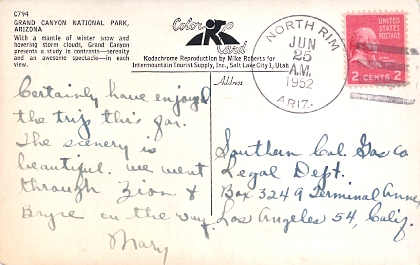 C794
GRAND CANYON NATIONAL PARK,
ARIZONA
With a mantle of winter snow and
hovering storm clouds, Grand Canyon
presents a study in contrasts—serenity
and an awesome spectacle—in each
view.
Color
Card
Kodachrome Reproduction by Mike Roberts for
Intermountain Tourist Supply, Inc., Salt Lake City 1, Utah
Address
NORTH RIM
JUN
25
A.M.
1952
ARIZ.
UNITED
STATES
POSTAGE
2 CENTS 2
Certainly have enjoyed
the trip this far.
The scenery is
beautiful. We went
through Zion &
Bryce on the way.
Mary
Southern Cal. Gas Co
Legal Dept.
Box 3249 Terminal Annex,
Los Angeles 54, Calif.